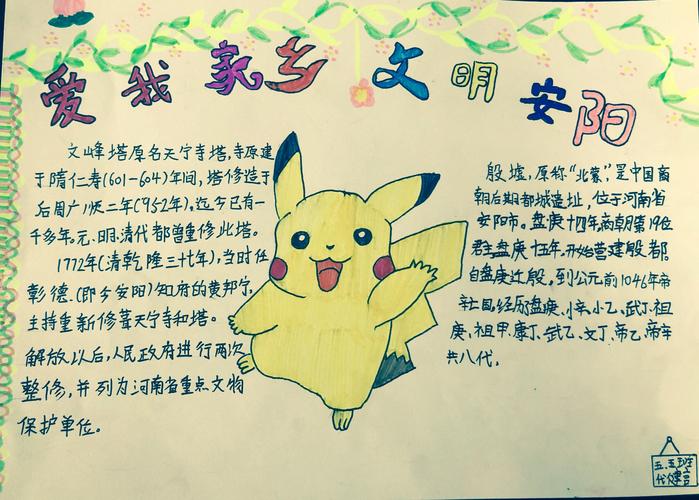 爱我家乡 文明安阳
文峰塔原名天宁寺塔,寺原建
于隋仁寿(601-604)年间,塔修造于
后周广顺二年(952年),迄今已有一
千多年,元、明、清代都曾重修此塔。
1772年(清乾隆三十七年),当时任
彰德(即今安阳)知府的黄邦宁,
主持重新修葺天宁寺和塔。
解放以后,人民政府进行两次
整修,并列为河南省重点文物
保护单位。
殷墟,原称“北蒙”,是中国商
朝后期都城遗址,位于河南省
安阳市。盘庚十四年,商朝第19位
君主盘庚十五年,开始营建殷都,
自盘庚迁殷,到公元前1046年帝
辛亡国,经历盘庚、小辛、小乙、武丁、祖
庚、祖甲、康丁、武乙、文丁、帝乙、帝辛
共八代,
五.五班